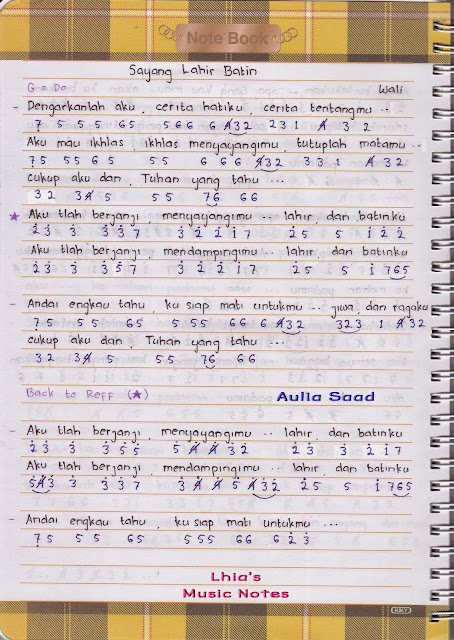 Note Book
Sayang Lahir Batin
G = Do Wali
- Dengarkanlah aku, cerita hatiku, cerita tentangmu ..
7 5 5 5 6 5 5 6 6 6 4̸ 3 2 2 3 1 4̸ 3 2
Aku mau ikhlas ikhlas menyayangimu, tutuplah matamu ..
7 5 5 5 6 5 5 5 6 6 6 4̸ 3 2 3 3 1 4̸ 3 2
cukup aku dan, Tuhan yang tahu ...
3 2 3 4̸ 5 5 5 7 6 6 6
★ Aku tlah berjanji, menyayangimu ... lahir, dan batinku
2 3 3 3 3 7 3 2 2 1 7 2 5 5 1 2 2
Aku tlah berjanji, mendampingimu ... lahir, dan batinku
2 3 3 3 5 7 3 2 2 1 7 2 5 5 1 7 6 5
- Andai engkau tahu, ku siap mati untukmu ... jiwa, dan ragaku
7 5 5 5 6 5 5 5 5 6 6 6 4̸ 3 2 3 2 3 1 4̸ 3 2
cukup aku dan, Tuhan yang tahu ...
3 2 3 4̸ 5 5 5 7 6 6 6
Back to Reff (★) Aulia Saad
- Aku tlah berjanji, menyayangimu ... lahir, dan batinku
2 3 3 3 5 5 5 4̸ 4̸ 3 2 2 3 3 2 1 7
Aku tlah berjanji, mendampingimu ... lahir, dan batinku
5 4̸ 3 3 3 3 7 3 4̸ 4̸ 5 4̸ 3 2 2 5 5 1 7 6 5
- Andai engkau tahu, ku siap mati untukmu ...
7 5 5 5 6 5 5 5 5 6 6 6 2 3
Lhia's
Music Notes
KKY